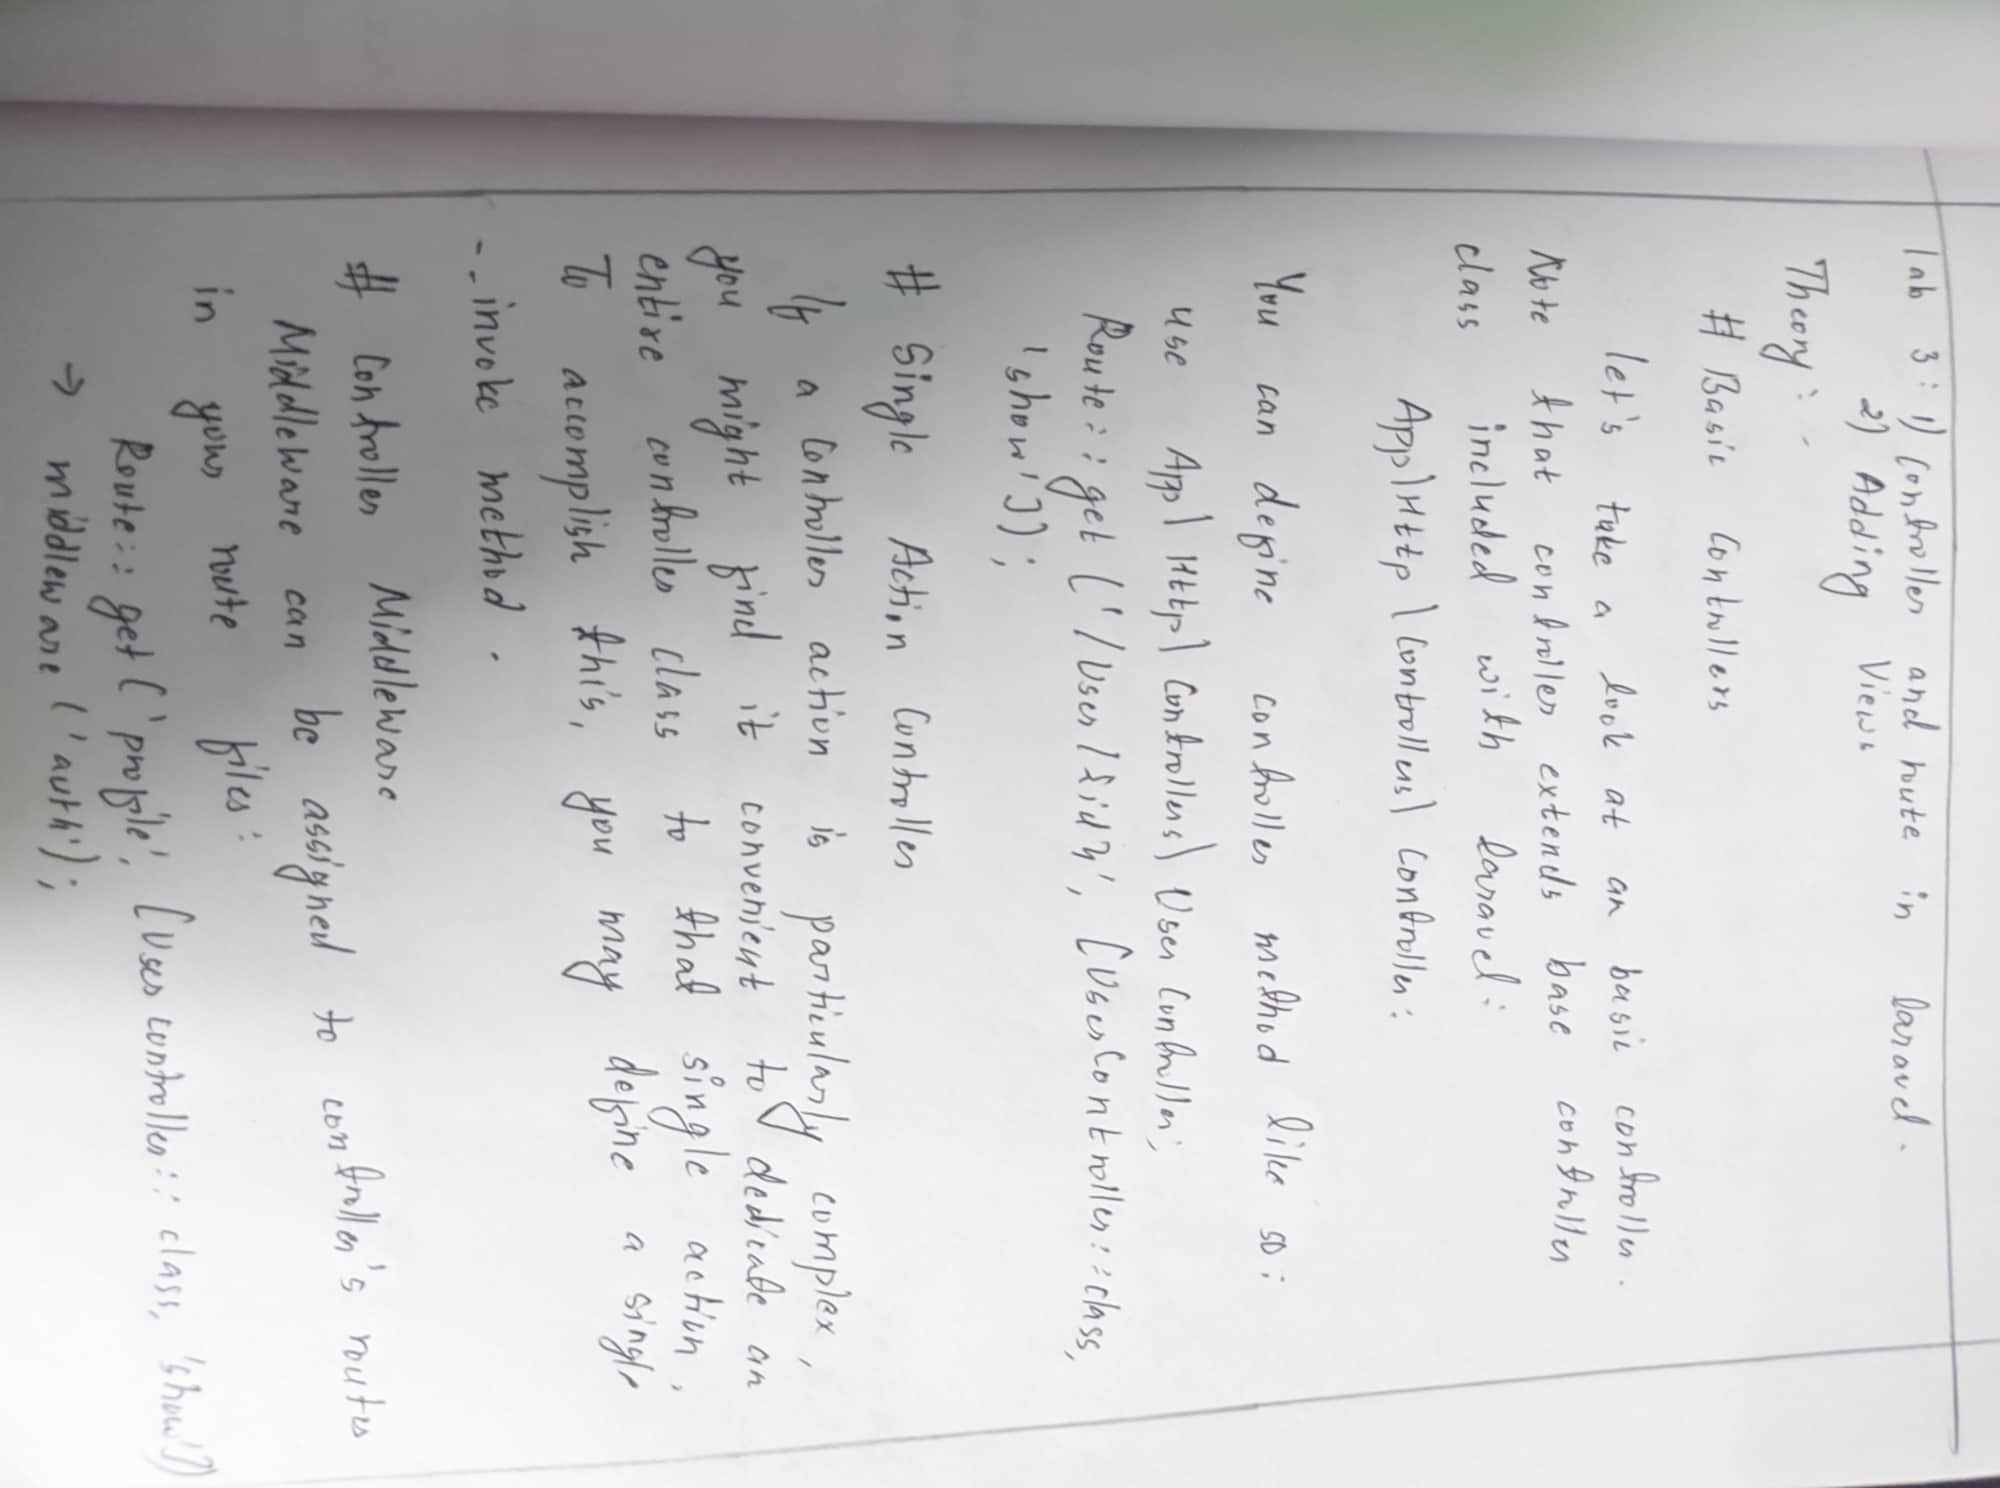 lab 3: 1) Controller and route in laravel.
2) Adding Views
Theory:-
# Basic Controllers
let's take a look at an basic controller.
Note that controller extends base controller
class included with laravel:
App\Http\Controllers\Controller:
You can define controller method like so:
use App\Http\Controllers\User Controller;
Route::get('/User/{id}', [UserController::class,
'show']);
# Single Action Controller
If a Controller action is particularly complex,
you might find it convenient to dedicate an
entire controller class to that single action.
To accomplish this, you may define a single
--invoke method.
# Controller Middleware
Middleware can be assigned to controller's routes
in your route files:
Route::get('profile', [Usercontroller::class, 'show'])
→ middleware('auth');